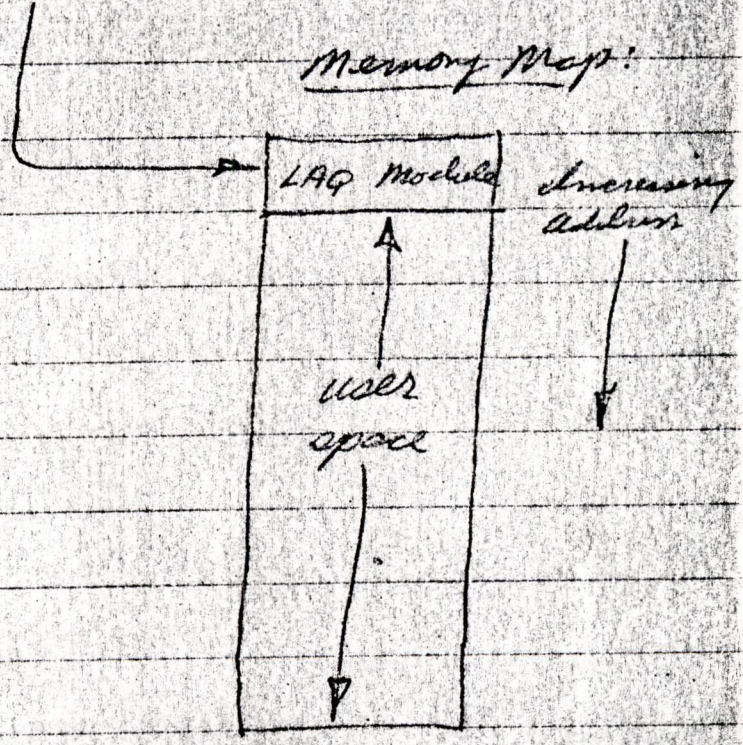 Memory Map:
LAQ Module
Increasing
Address
user
space